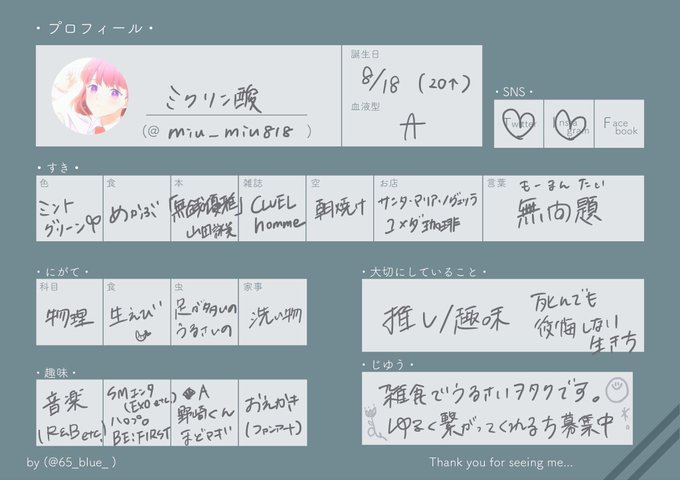 ・プロフィール・
ミクリン酸
(@ miu_miu818 )
誕生日
8/18 (20↑)
血液型
A
・SNS・
Twitter
Instagram
Facebook
・すき・
色
ミント
グリーン
食
めかぶ
本
「無銭優雅」
山田詠美
雑誌
CLUEL
homme
空
朝焼け
お店
サンタ・マリア・ノヴェッラ
コメダ珈琲
言葉
もーまんたい
無問題
・にがて・
科目
物理
食
生えび
虫
足が多いの
うるさいの
家事
洗い物
・大切にしていること・
推し/趣味
死んでも
後悔しない
生き方
・趣味・
音楽
(R&B etc.)
SMエンタ
(EXO etc.)
ハロプロ
BE:FIRST
◆A
野崎くん
まどマギ
おえかき
(ファンアート)
・じゆう・
雑食でうるさいヲタクです。
ゆるく繋がってくれる方募集中
by (@65_blue_ )
Thank you for seeing me...